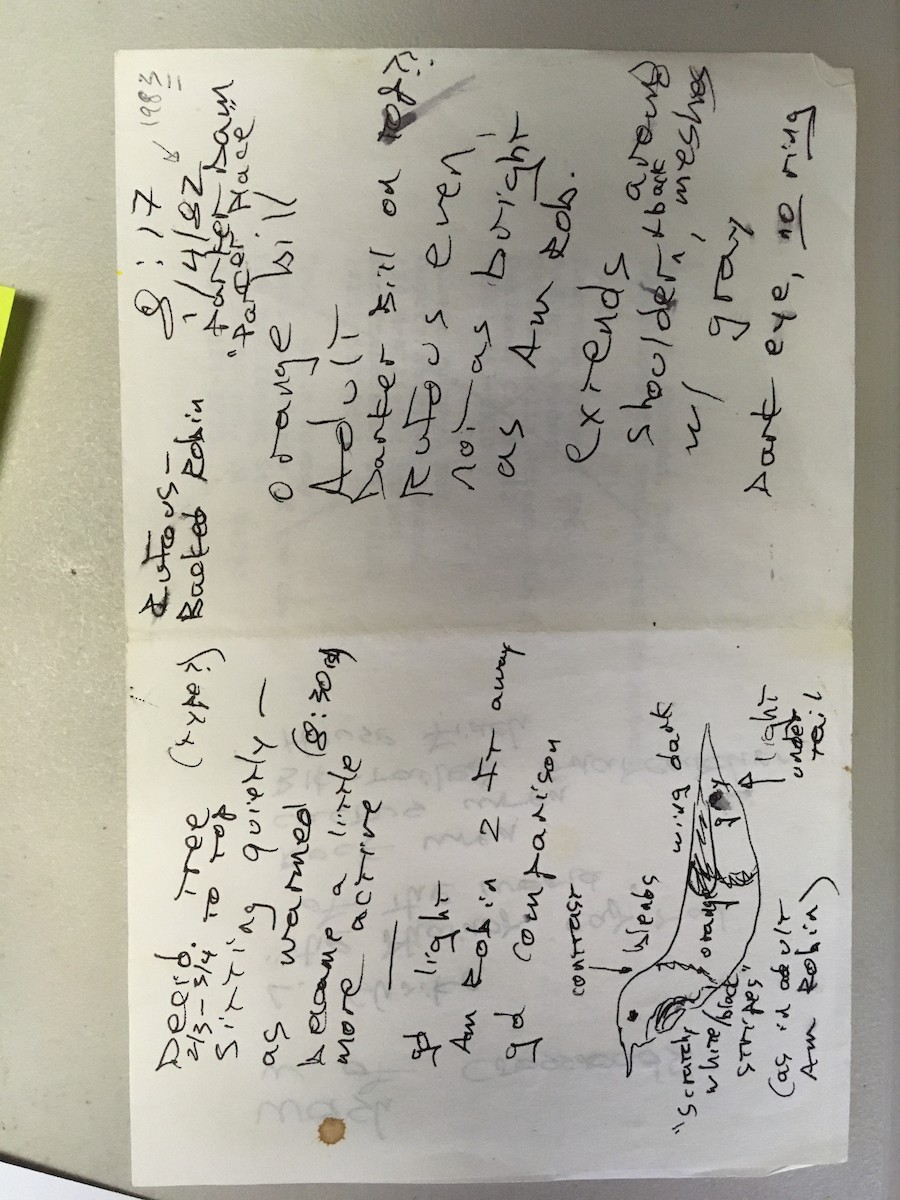 Rufous-
Backed Robin
8:17
1/4/82
1983
orange bill
Adult
Darker Bill on top??
Rufous even,
not as bright
as Am Rob.
extends around
shoulder + back
w/, meshes
gray
Dark eye, no ring
Decid. tree (type?)
2/3-3/4 to top
Sitting quietly —
as warmed (8:30
became a little
more active
gd light
Am Robin 2 ft away
gd comparison
contrast
blends
wing dark
orange
gray
light
under
tail
"scratchy
white/black
stripes"
(as in adult
Am Robin)